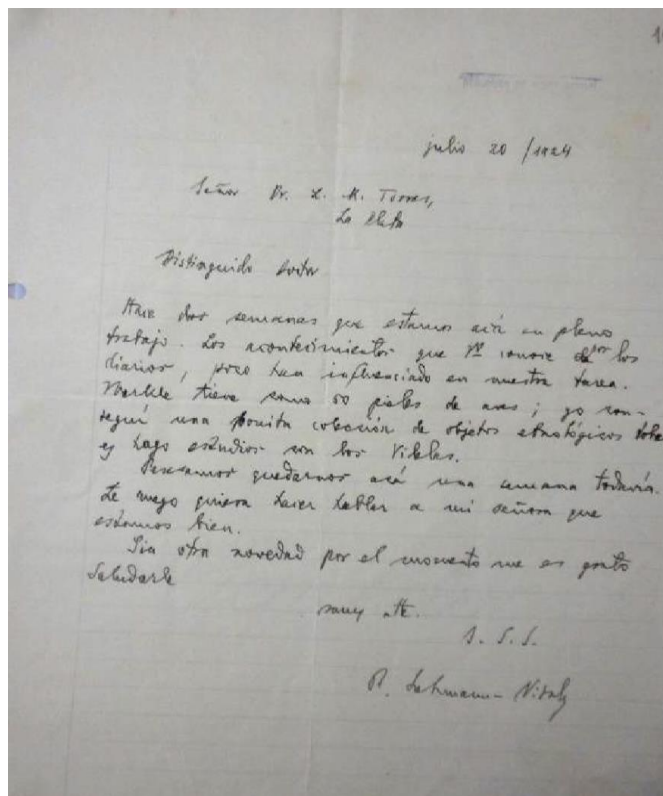 julio 20 /1924
Señor Dr. L. M. Torres,
La Plata
Distinguido doctor
Hace dos semanas que estamos acá en pleno
trabajo. Los acontecimientos que Vd conoce por los
diarios, poco han influenciado en nuestra tarea.
tiene como 60 pieles de aves; yo con-
seguí una bonita colección de objetos etnológicos tobas
y hago estudios con los Vilelas.
Pensamos quedarnos acá una semana todavía.
Le ruego quiera hacer hablar a mi señora que
estamos bien.
Sin otra novedad por el momento me es grato
saludarle
muy atte.
S. S. S.
R. Lehmann-Nitsche